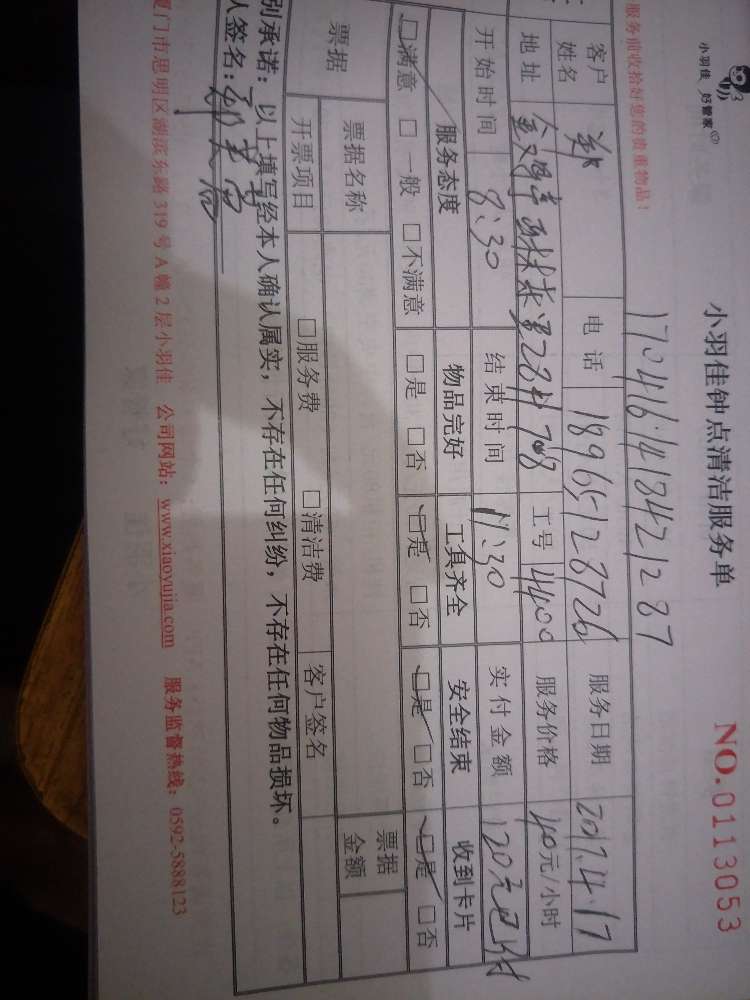 小羽佳 好管家
小羽佳钟点清洁服务单
NO.0113053
17041614184212 87
服务前收拾好您的贵重物品！
客户姓名 郑 电话 18965128726 服务日期 2017.4.17
地址 2847708 工号 4400 服务价格 40元/小时
开始时间 8:30 结束时间 11:30 实付金额 120元已付
服务态度 物品完好 工具齐全 安全结束 收到卡片
□满意 □一般 □不满意 □是 □否 □是 □否 □是 □否 □是 □否
票据 票据名称 票据金额
开票项目 □服务费 □清洁费 客户签名
别承诺：以上填写经本人确认属实，不存在任何纠纷，不存在任何物品损坏。
人签名：
厦门市思明区湖滨东路 319 号 A 幢 2 层小羽佳 公司网站：www.xiaoyujia.com 服务监督热线：0592-5888123